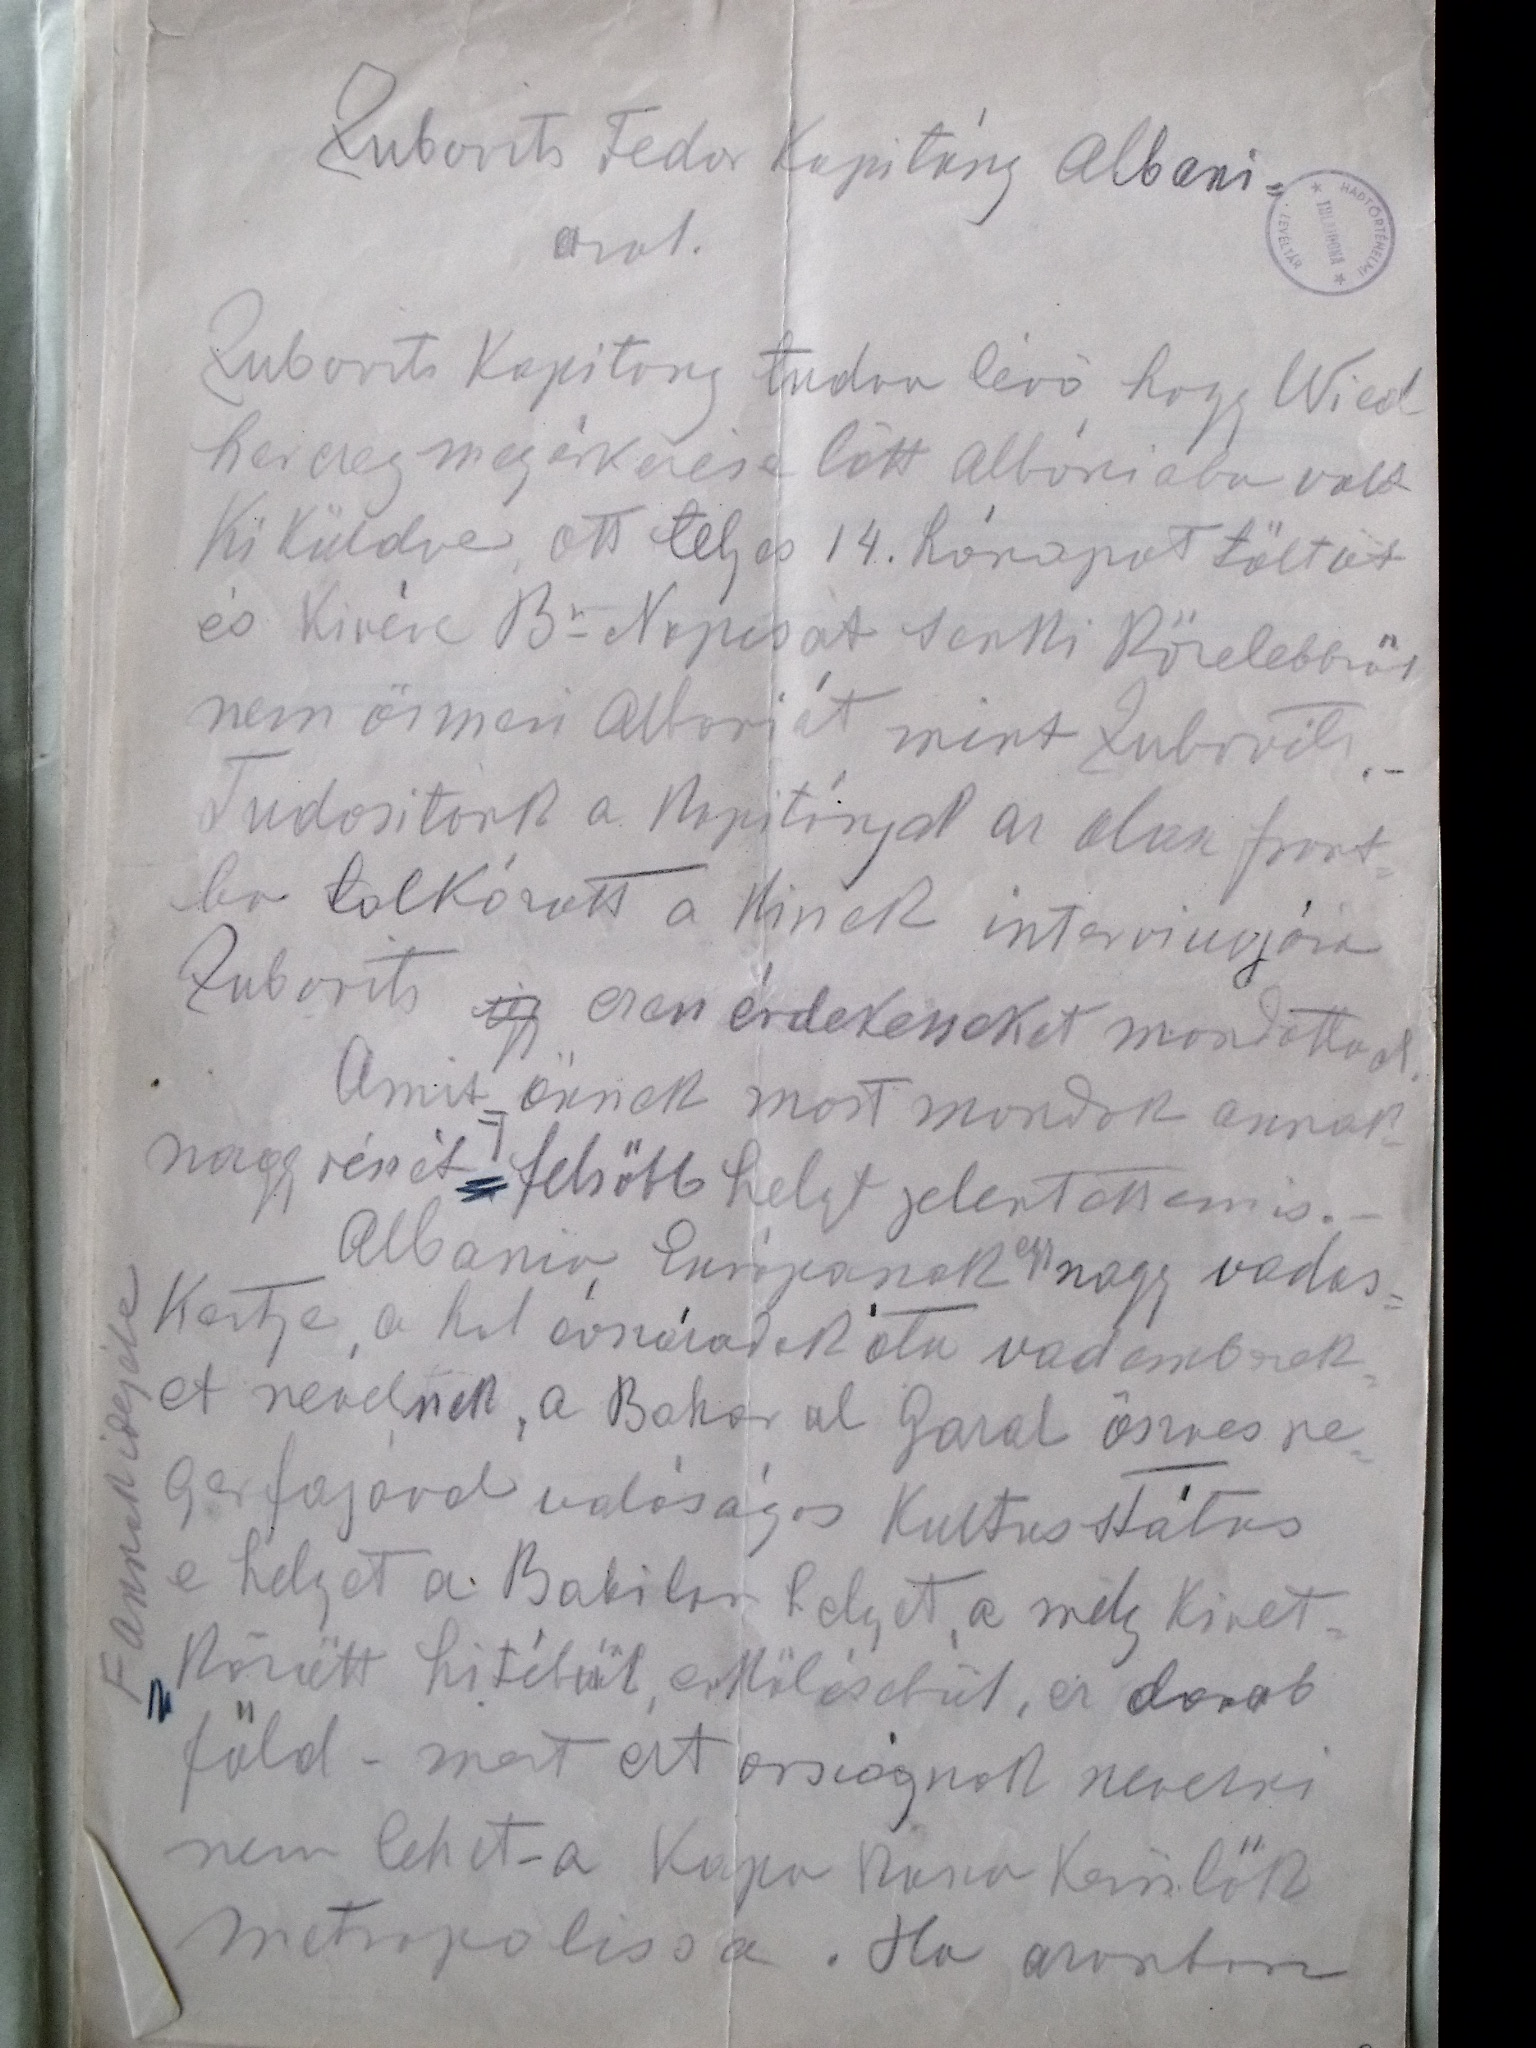 Zubovits Fedor Kapitány Albani=
arol.
HADTÖRTÉNELMI LEVÉLTÁR
Zubovits Kapitány tudva lévő, hogy Wied
herczeg megérkezése lött Albániába volt
Ki Küldve, ott teljes 14. hónapot töltöt
és Kivéve Br Nopcsát senki Közelebbröl
nem ösmeri Albaniát mint Zubovits.-
Tudositonk a Kapitányal az olasz front=
ba talKózott a Kinek interviuvjára
Zubovits ezen érdekeseket mondotta el.
Amit önnek most mondok annak
nagy részét felsöbb helyt jelentettem is.-
Albania Európanak egy nagy vadas=
Kertje, a hol évszázadok óta vademberek=
et nevelnek, a Bahar el Gazal öszves ne=
gerfajával valóságos Kultus státus
e helyet a Babilon helyet, a mely Kivet=
Között hitéből, erkölcséből, ez darab
föld - mert ezt országnak nevezni
nem lehet - a Kapa Kasza Kerülök
metropolissa. Ha azonban
Fannak idejébe